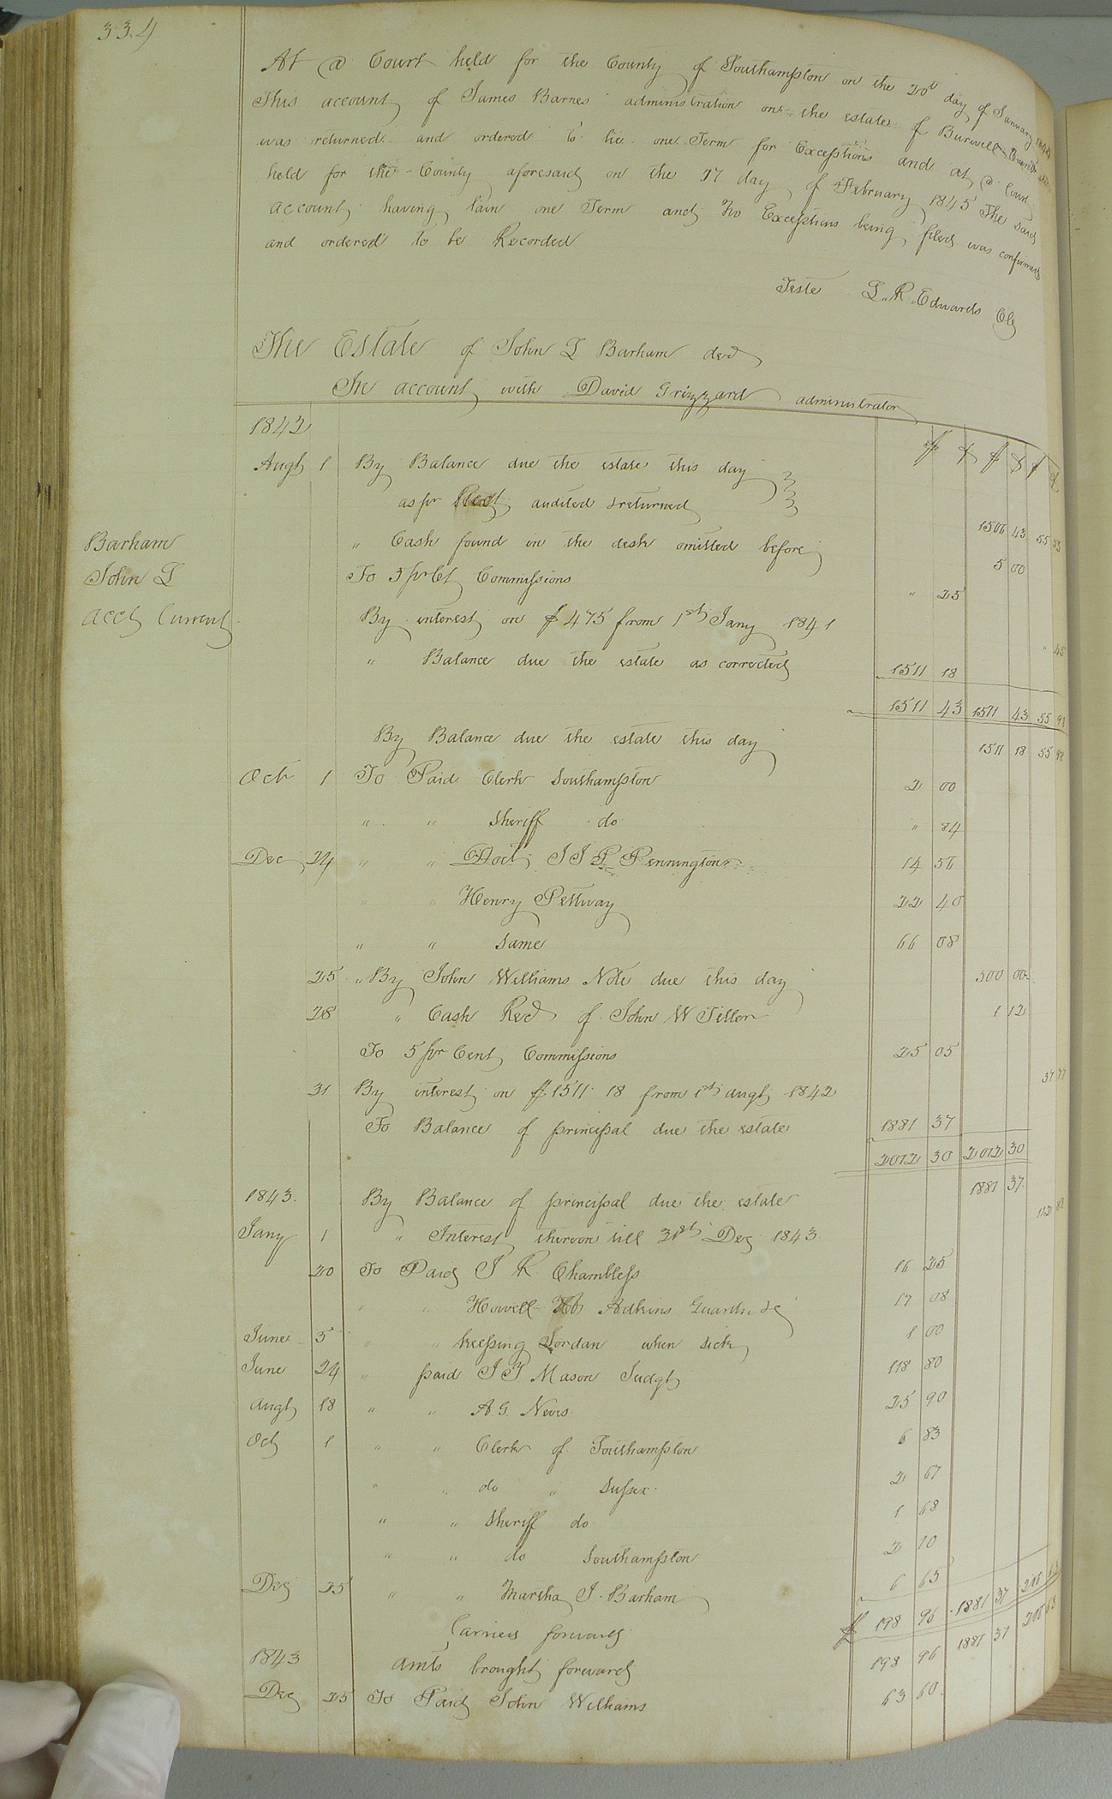 334
At a Court held for the County of Southampton on the 20th day of January
This account of James Barnes administration on the estate of Burwell
was returned and ordered to lie one Term for Exceptions and at a Court
held for the County aforesaid on the 17 day of February 1845 The said
account having lain one Term and no Exceptions being filed was confirmed
and ordered to be Recorded
Teste L. R. Edwards Clk
The Estate of John L Barham decd
In account with David Grizzard administrator
1842
Augt 1 By Balance due the estate this day
as pr audited & returned 1506 43 55
Barham
John L
acct Current
" Cash found in the desk omitted before 5 00
To 5 pr Ct Commissions " 25
By interest on $475 from 1st Jany 1841 " 45
" Balance due the estate as corrected 1511 18
1511 43 1511 43 55 98
By Balance due the estate this day 1511 18 55 98
Oct 1 To Paid Clerk Southampton 2 00
" " Sheriff do " 84
Dec 24 " " Doct J J P Pennington 14 56
" " Henry Pettway 22 40
" " Same 66 08
25 " By John Williams Note due this day 500 00
28 " Cash Recd of John W Tiller 1 12
To 5 pr Cent Commissions 25 05
31 By interest on $1511.18 from 1st augt 1842 37 77
To Balance of principal due the estate 1881 37
2012 30 2012 30
1843. By Balance of principal due the estate 1881 37
Jany 1 " Interest thereon till 31st Dec 1843 112 88
20 To Paid J R Chambless 16 25
" " Howell Adkins Guardn &c 17 08
June 5 " " keeping Jordan when sick 1 00
June 24 " paid J T Mason Judgt 118 80
augt 18 " " A G Nevis 25 90
Oct 1 " " Clerk of Southampton 6 83
" " do " Sussex 2 67
" " Sheriff do 1 68
" " do Southampton 2 10
Dec 25 " " Martha J. Barham 6 65
Carried forward $ 198 96 1881 37 206 63
1843 amts brought forward 198 96 1881 37 206 63
Dec 25 To Paid John Williams 63 60